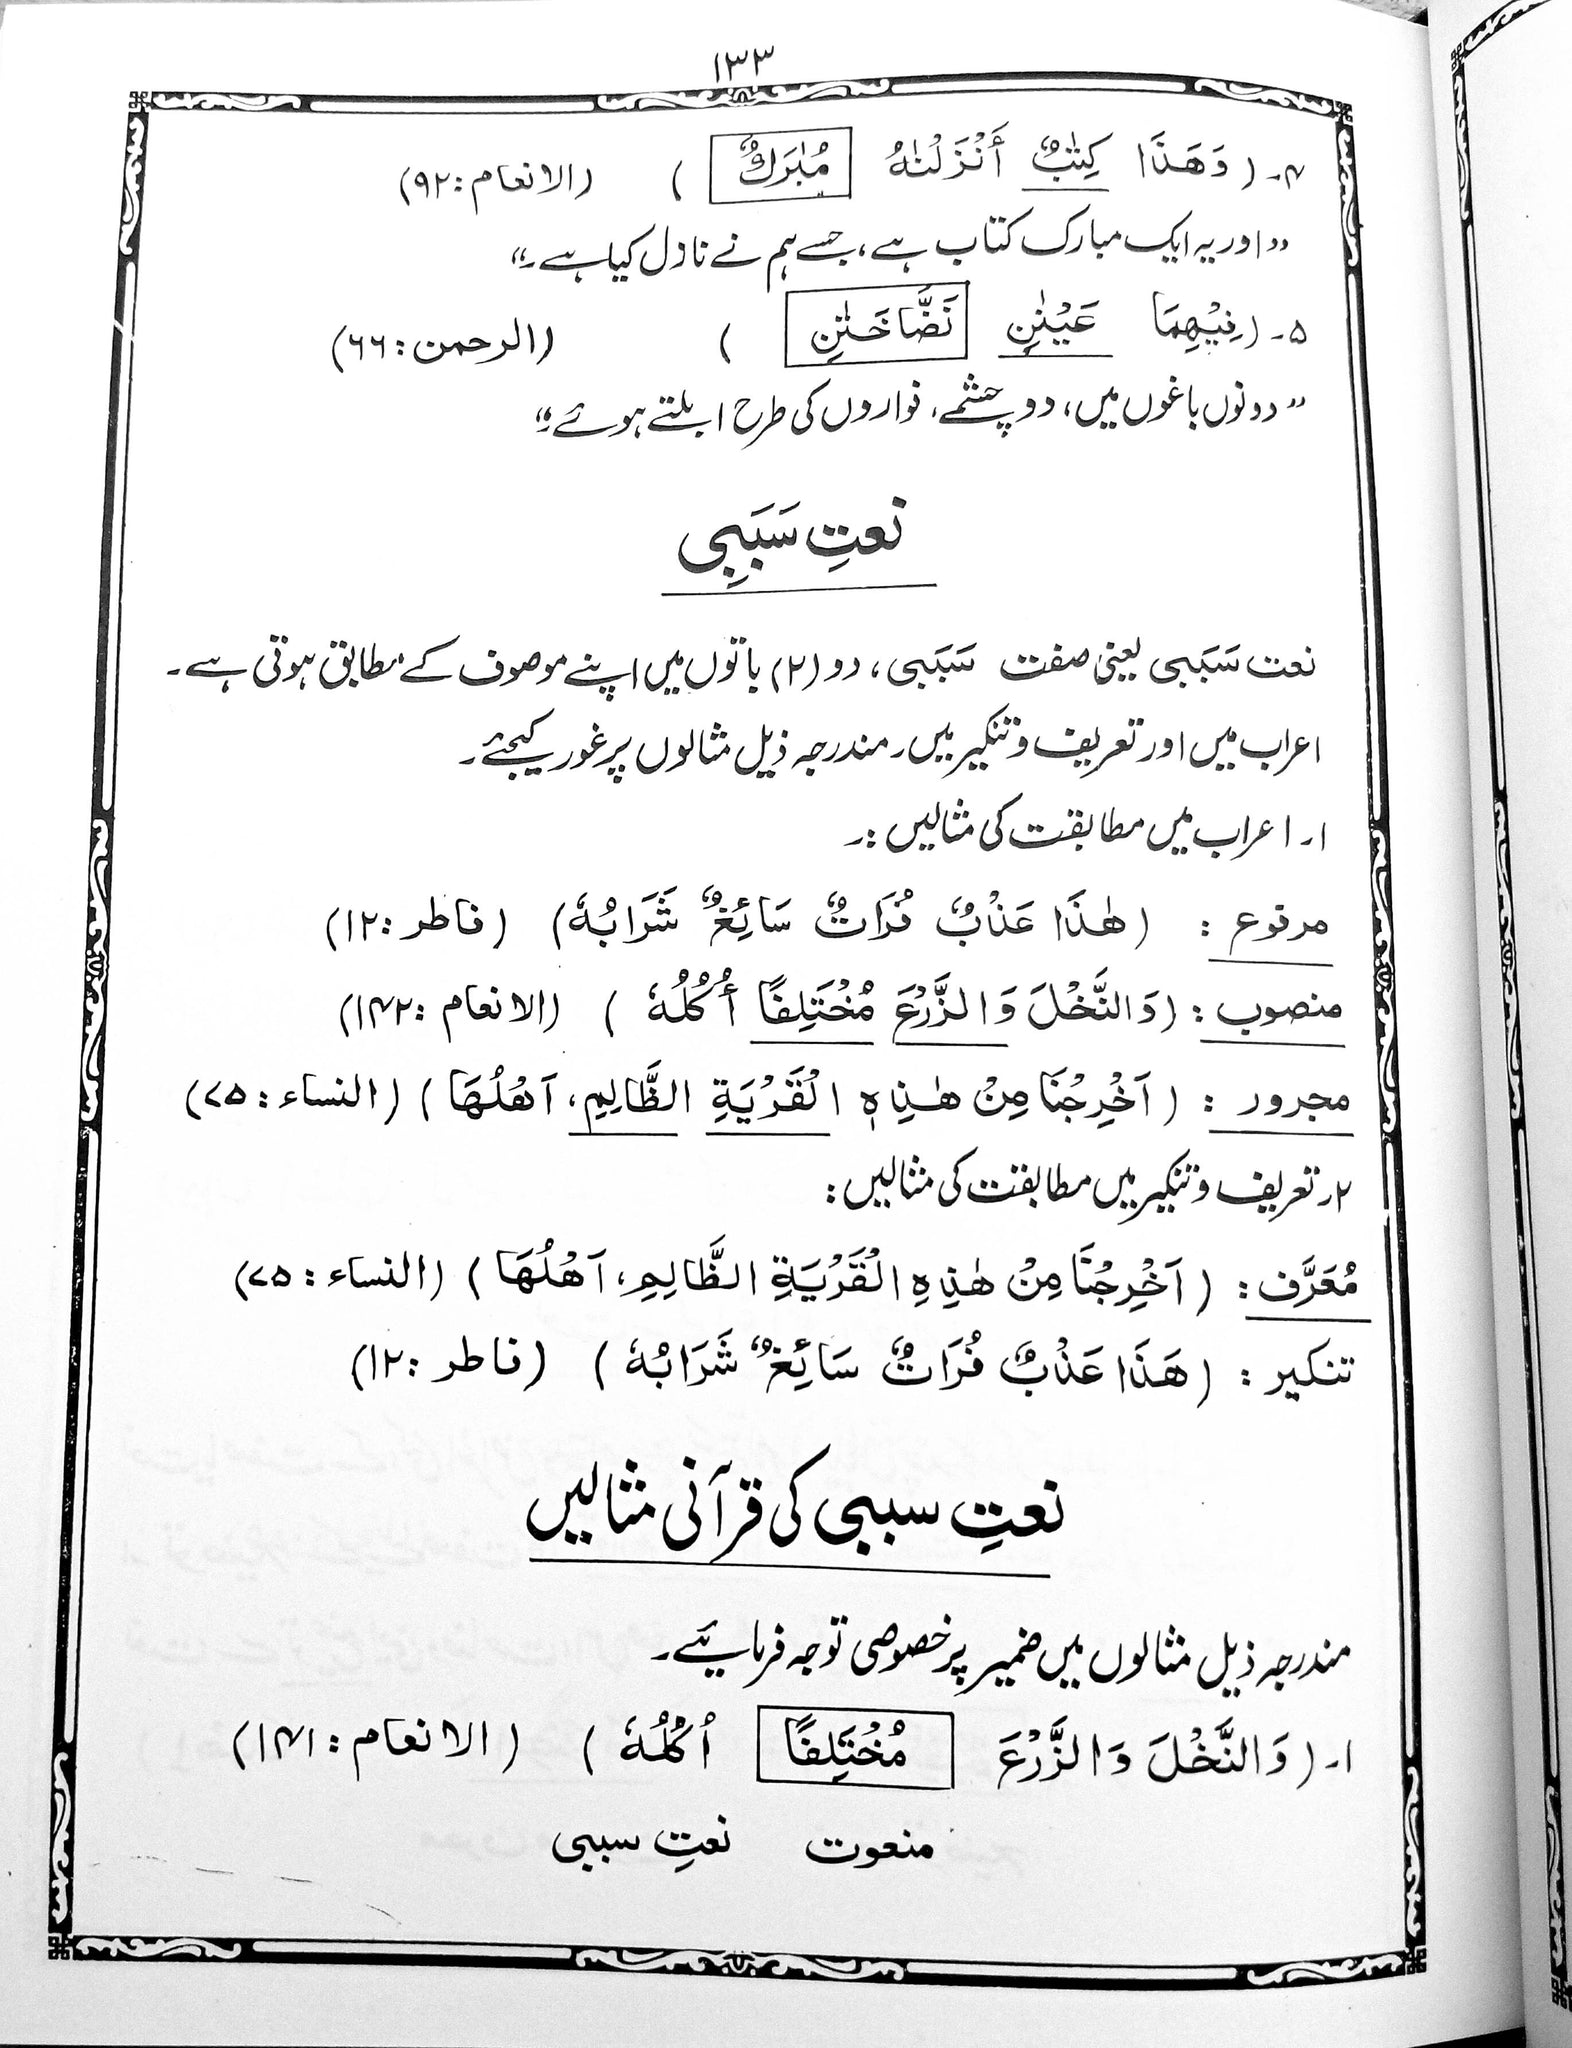 ۱۳۳
۴۔ (وَهَذَا كِتٰبٌ أَنْزَلْنٰهُ مُبٰرَكٌ) (الانعام:۹۲)
”اور یہ ایک مبارک کتاب ہے، جسے ہم نے نازل کیا ہے۔“
۵۔ (فِيْهِمَا عَيْنٰنِ نَضَّاخَتٰنِ) (الرحمن:۶۶)
”دونوں باغوں میں، دو چشمے، فواروں کی طرح ابلتے ہوئے۔“
نعتِ سَبَبِی
نعت سَبَبی یعنی صفت سَبَبی، دو (۲) باتوں میں اپنے موصوف کے مطابق ہوتی ہے۔
اعراب میں اور تعریف و تنکیر میں۔ مندرجہ ذیل مثالوں پر غور کیجئے۔
۱۔ اعراب میں مطابقت کی مثالیں:۔
مرفوع : (هٰذَا عَذْبٌ فُرَاتٌ سَائِغٌ شَرَابُهٗ) (فاطر:۱۲)
منصوب : (وَالنَّخْلَ وَالزَّرْعَ مُخْتَلِفًا أُكُلُهٗ) (الانعام:۱۴۲)
مجرور : (اَخْرِجْنَا مِنْ هٰذِهِ الْقَرْيَةِ الظَّالِمِ، اَهْلُهَا) (النساء:۷۵)
۲۔ تعریف و تنکیر میں مطابقت کی مثالیں:
مُعَرَّف : (اَخْرِجْنَا مِنْ هٰذِهِ الْقَرْيَةِ الظَّالِمِ، اَهْلُهَا) (النساء:۷۵)
تنکیر : (هَذَا عَذْبٌ فُرَاتٌ سَائِغٌ شَرَابُهٗ) (فاطر:۱۲)
نعتِ سببی کی قرآنی مثالیں
مندرجہ ذیل مثالوں میں ضمیر پر خصوصی توجہ فرمائیے۔
۱۔ (وَالنَّخْلَ وَالزَّرْعَ مُخْتَلِفًا اُكُلُهٗ) (الانعام:۱۴۱)
منعوت نعتِ سببی